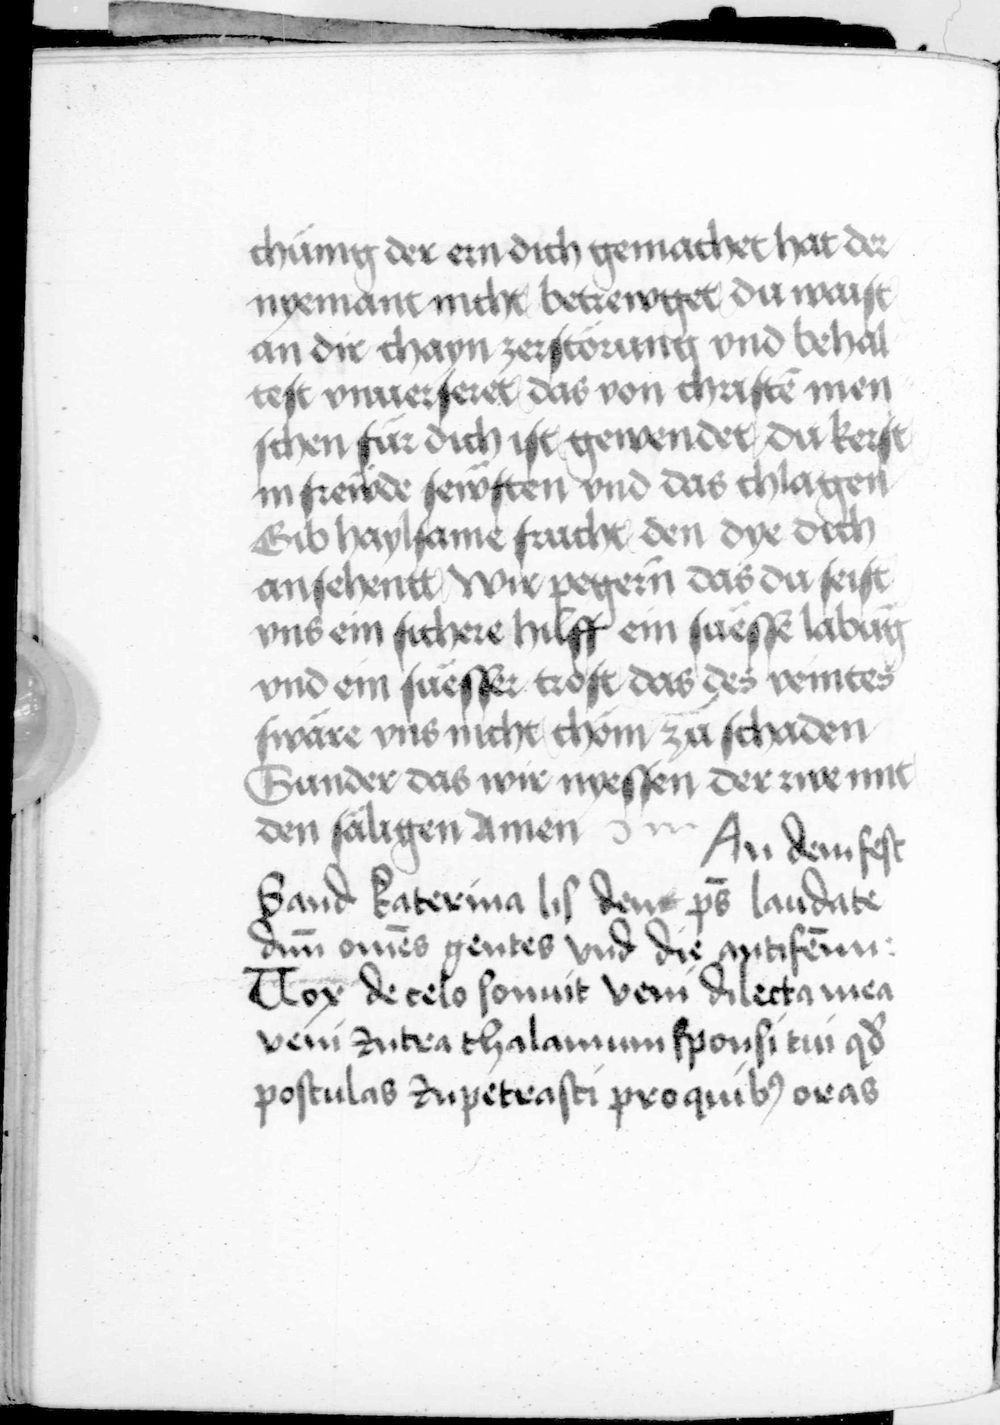 chünig der ern dich gemachet hat der
nyemant nicht betrewget du waist
an dir chayn zerstörung vnd behal
test vnuerseret das von christē men
schen für dich ist gewendet du kerst
in frewde sewften vnd das chlagen
Gib haylsame frucht den dye dich
ansehentt Wir pegern das du seist
vns ein sichere hilff ein süesse labūg
vnd ein süesser trost das des veintes
swäre vns nicht chöm zü schaden
Sunder das wir nyessen der rwe mit
den säligen Amen
An dem fest
Sand katerina lis den ps̄ laudate
dn̄m om̄es gentes vnd die antifenn:
Uox de celo sonuit veni dilecta mea
veni Intra thalamum sponsi tui qd̄
postulas Inpetrasti pro quibꝰ oras